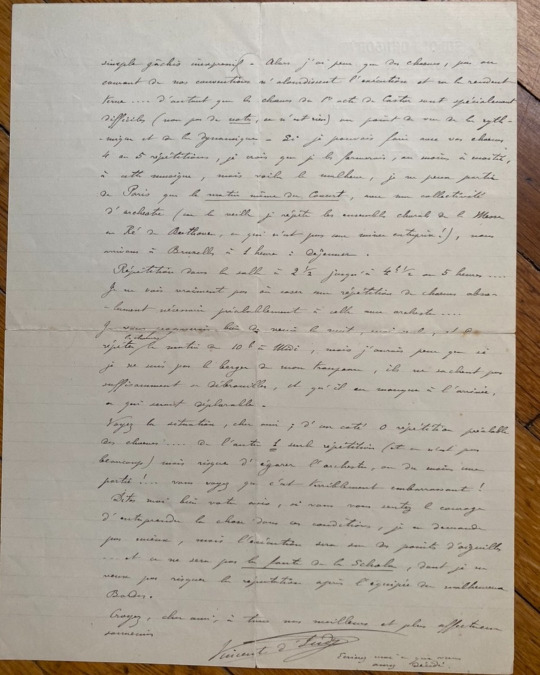 simple gâchis inexpressif – Alors j'ai peur que des chœurs, peu au
courant de nos conventions n'alourdissent l'exécution et ne la rendent
terne .... d'autant que les chœurs du 1er acte de Castor sont spécialement
difficiles (non pas de note, ce n'est rien) au point de vue de la ryth-
mique et de la dynamique – Si je pouvais faire avec vos chœurs
4 ou 5 répétitions, je crois que je les formerais, au moins à moitié,
à cette musique, mais voilà le malheur, je ne peux partir
de Paris que le matin même du Concert, avec ma collectivité
d'orchestre (car la veille je répète les ensembles choral de la Messe
en Ré de Beethoven, ce qui n'est pas une mince entreprise!), nous
arrivons à Bruxelles à 1 heure : déjeuner.
Répétition dans la salle à 2 ½ jusqu'à 4 h ½ ou 5 heures ....
Je ne vois vraiment pas où caser une répétition de chœurs abso-
lument nécessaire préalablement à celle avec orchestre ....
Je pourrais bien venir la nuit, moi seul, et
répéter les chœurs le matin de 10 h à Midi, mais j'aurais peur que si
je ne suis pas le berger de mon troupeau, ils ne sachent pas
suffisamment se débrouiller, et qu'il en manque à l'arrivée,
ce qui serait déplorable –
Voyez la situation, cher ami ; d'un côté 0 répétition préalable
des chœurs .... de l'autre 1 seule répétition (et ce n'est pas
beaucoup) mais risque d'égarer l'orchestre, ou du moins une
partie !... vous voyez que c'est terriblement embarrassant !
Dites moi bien votre avis, si vous vous sentez le courage
d'entreprendre la chose dans ces conditions, je ne demande
pas mieux, mais l'exécution sera sur des pointes d'aiguilles
.... et ce ne sera pas la faute de la Schola, dont je ne
veux pas risquer la réputation après l'équipée du malheureux
Bordes.
Croyez, cher ami, à tous nos meilleurs et plus affectueux
souvenirs
Vincent d'Indy
Ecrivez moi ce que vous
aurez décidé.